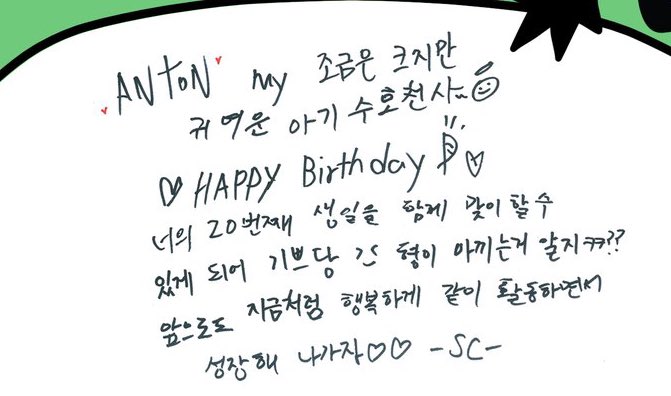 ♥ANTON♥ my 조금은 크지만
귀여운 아기 수호천사~
♡ HAPPY Birthday ♡
너의 20번째 생일을 함께 맞이할수
있게 되어 기쁘당 형이 아끼는거 알지ㅋㅋ??
앞으로도 지금처럼 행복하게 같이 활동하면서
성장해 나가자♡♡ -SC-